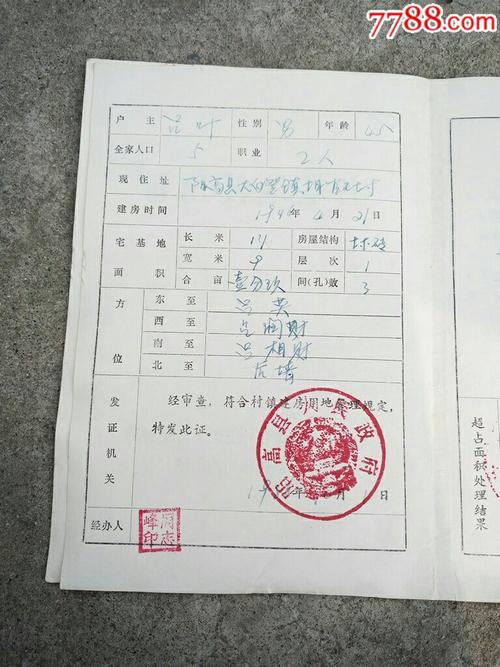 7788.com
户主 吕叶 性别 男 年龄 45
全家人口 5 职业 工人
现住址 阳高县大白登镇
建房时间 19 年 4月21日
宅基地面积 长 米 房屋结构 坯砖
宽 米 9 层次 1
合 亩 壹分玖 间(孔)数 3
方位 东至 吕英
西至 吕润财
南至 吕相财
北至 后墙
发证机关 经审查,符合村镇建房用地管理规定,
特发此证。
阳高县人民政府
19 年 月 日
经办人 周志峰印
超占面积处理结果